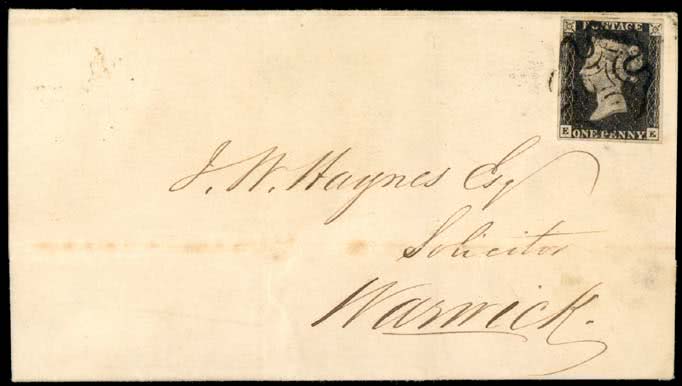 POSTAGE
E ONE PENNY E
J. W. Haynes Esq
Solicitor
Warwick.